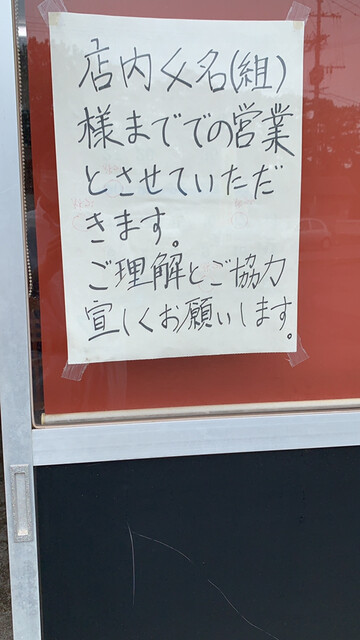 店内4名(組)
様まででの営業
とさせていただ
きます。
ご理解とご協力
宜しくお願いします。